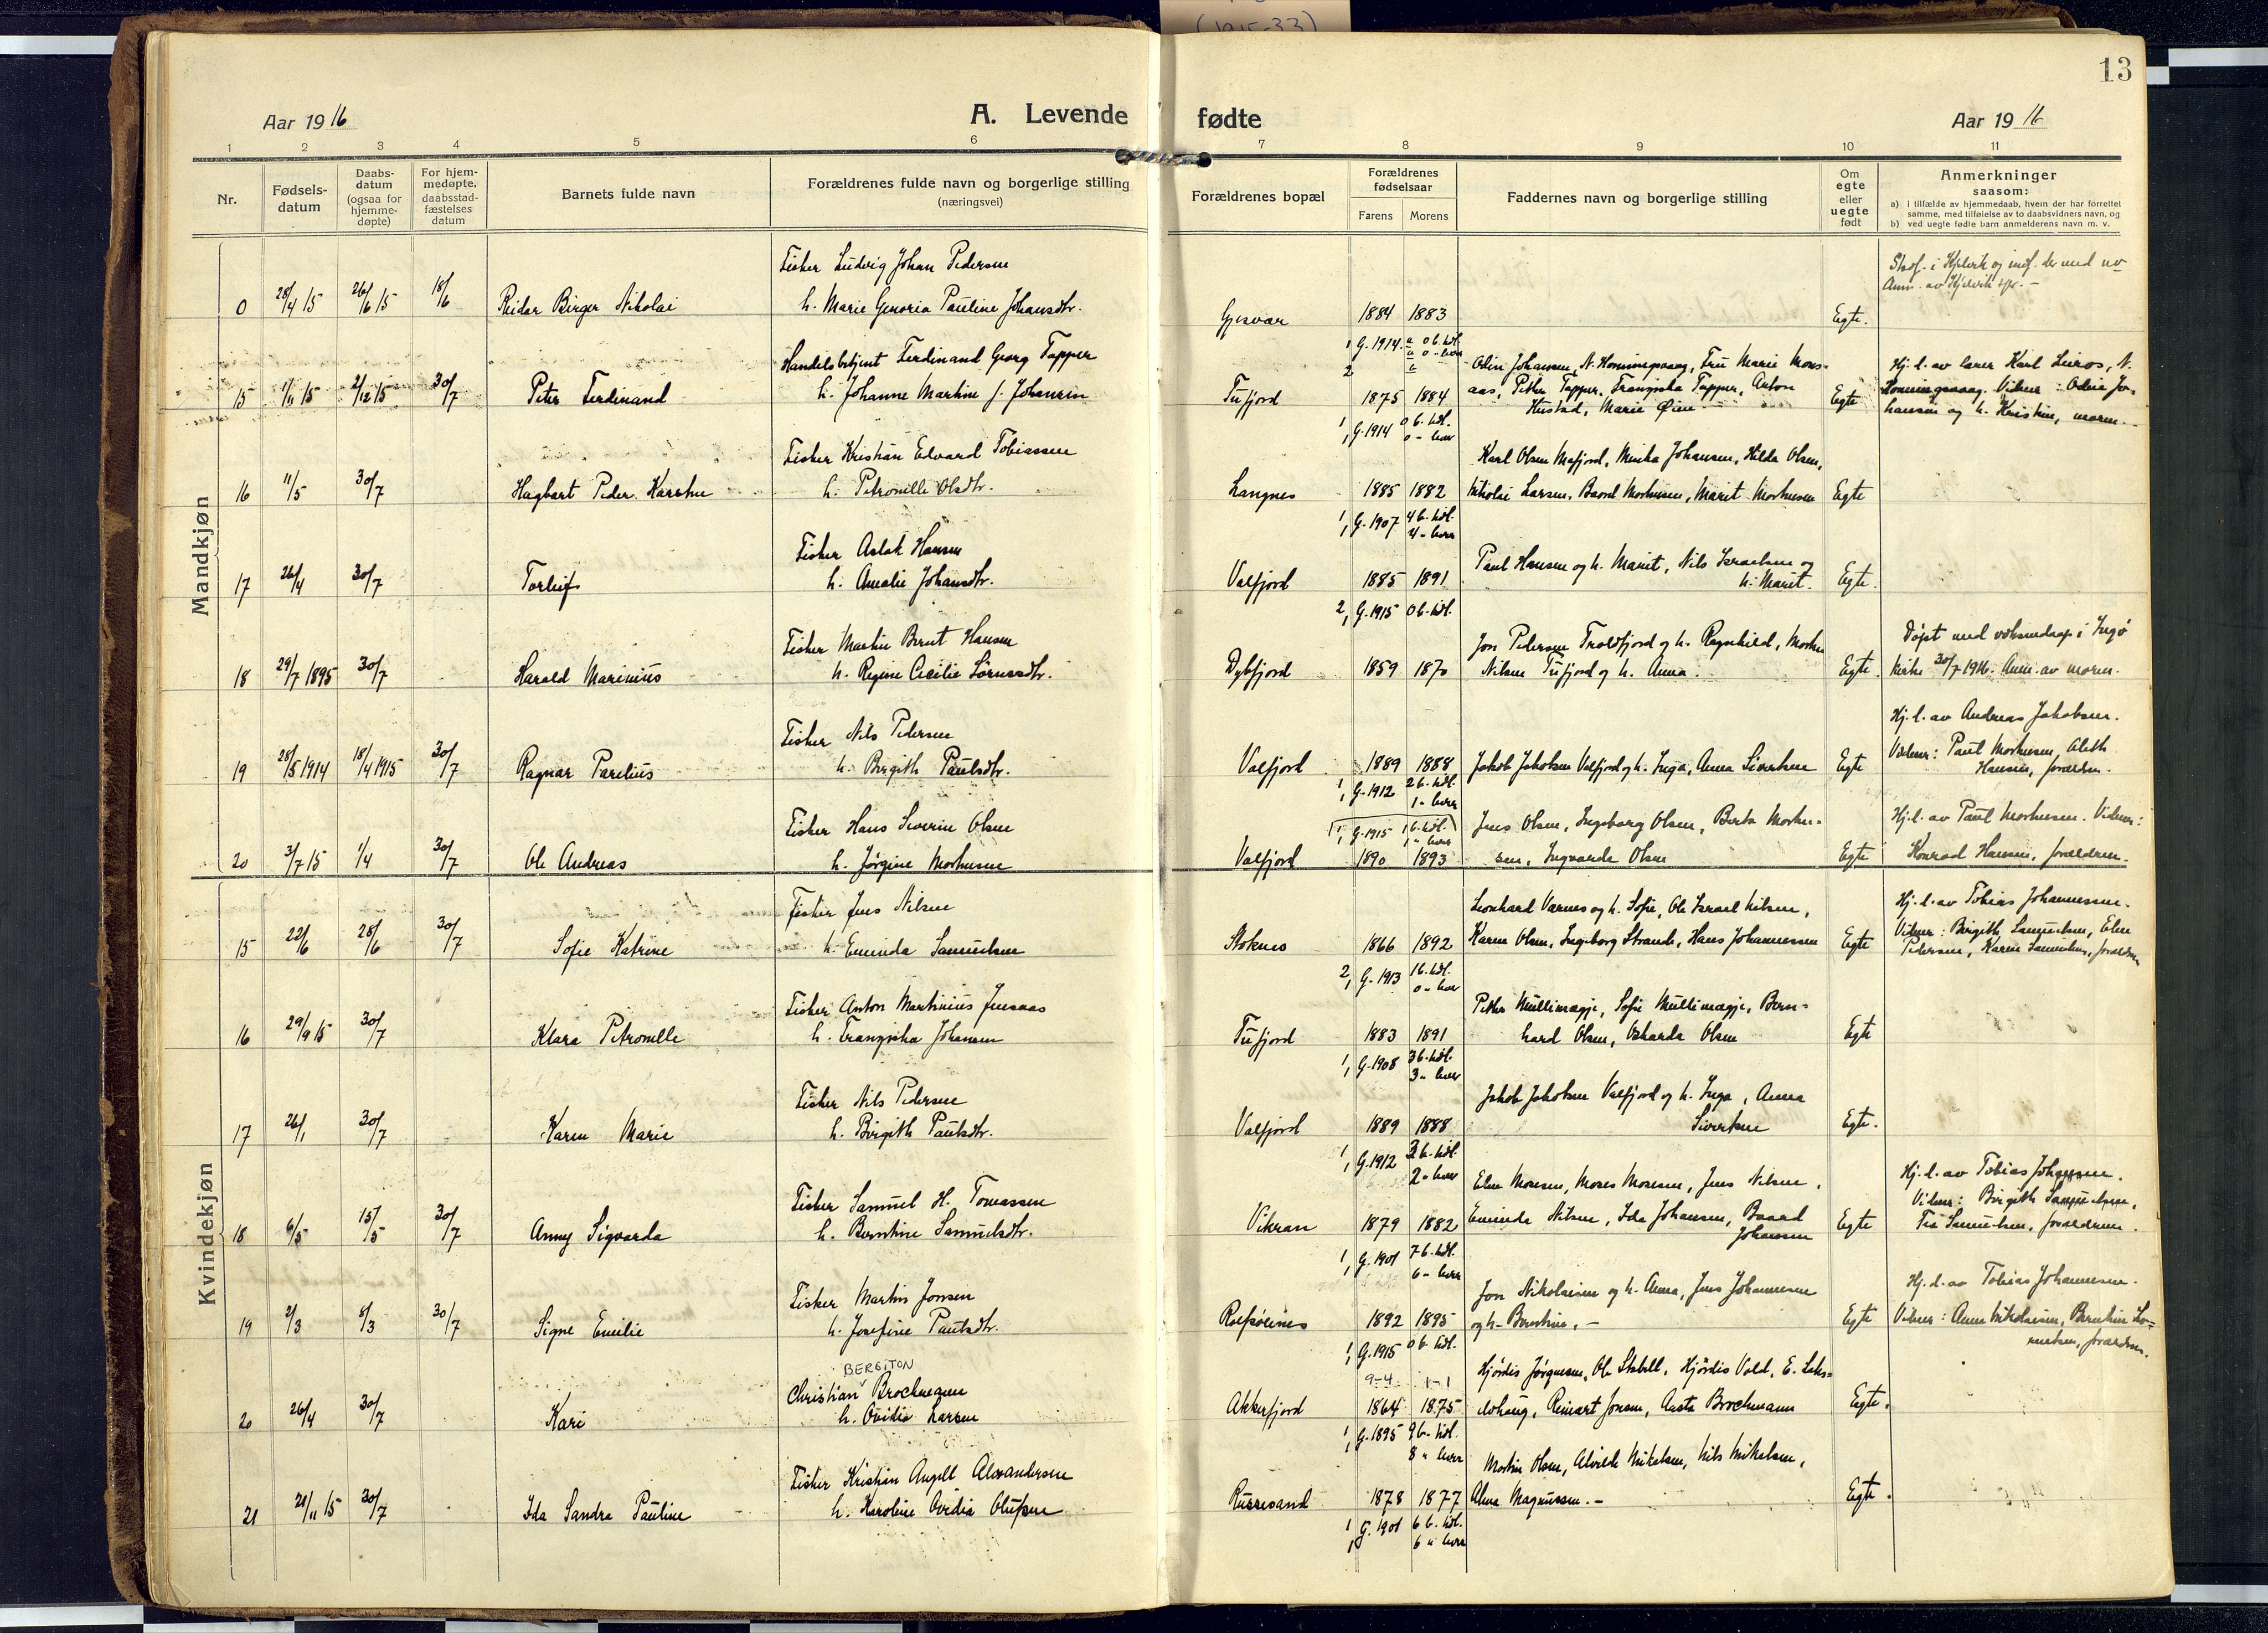 (1915-33)
13
Aar 1916
A. Levende
fødte
Aar 1916
1 2 3 4 5 6 7 8 9 10 11
Nr.
Fødsels-
datum
Daabs-
datum
(ogsaa for
hjemme-
døpte)
For hjem-
medøpte,
daabsstad-
fæstelses
datum
Barnets fulde navn
Forældrenes fulde navn og borgerlige stilling
(næringsvei)
Forældrenes bopæl
Forældrenes
fødselsaar
Farens Morens
Faddernes navn og borgerlige stilling
Om
egte
eller
uegte
født
Anmerkninger
saasom:
a) i tilfælde av hjemmedaab, hvem der har forrettet
samme, med tilføielse av to daabsvidners navn, og
b) ved uegte fødte barn anmelderens navn m. v.
Mandkjøn
0 28/4 15 26/6 15 18/6 Reidar Birger Nikolai
Fisker Ludvig Johan Pedersen
h. Marie Genoria Pauline Johansdtr.
Gjesvær 1884 1883 Egte.
G. 1914
15 1/11 15 2/12 15 30/7 Peter Ferdinand
Handelsbetjent Ferdinand Georg Tapper
h. Johanne Martine f. Johansen
Tufjord 1875 1884
Odin Johansen, N. Honningsvaag, Fru Marie Mons-
aas, Peter Tapper, Fransiska Tapper, Anton
Hustad, Marie Øien
Egte
Hj. d. av lærer Karl Leiros, N.
Honningsvaag. Vidner: Odin Jo-
hansen og h. Kristine, moren.
1, G. 1914 0 b. tdl.
0 " lever
16 11/5 30/7 Hagbart Peder Karsten
Fisker Kristian Edvard Tobiassen
h. Petronelle Olsdtr.
Langnes 1885 1882
Karl Olsen Mafjord, Minka Johansen, Hilda Olsen,
Nikolai Larsen, Baard Mortensen, Marit Mortensen
Egte
1, G. 1907 4 b. tdl.
4 " lever
17 26/4 30/7 Torleif
Fisker Aslak Hansen
h. Amalie Johansdtr.
Valfjord 1885 1891
Paul Hansen og h. Marit, Nils Israelsen og
h. Marit.
Egte.
2, G. 1915 0 b. tdl.
18 29/7 1895 30/7 Harald Marinius
Fisker Martin Bernt Hansen
h. Regine Cicilie Sørensdtr.
Dybfjord 1859 1870
Jon Pedersen Troldfjord og h. Ragnhild, Morten
Nilsen Tufjord og h. Anna.
Egte.
Døpt med voksendaap i Ingø
kirke 30/7 1916. Anm. av moren.
19 28/5 1914 18/4 1915 30/7 Ragnar Parelius
Fisker Nils Pedersen
h. Birgith Paulsdtr.
Valfjord 1889 1888 Jakob Jakobsen Valfjord og h. Inga, Anna Sivertsen Egte
Hj. d. av Andreas Jakobsen.
Vidner: Paul Mortensen, Aleth
Hansen, forældre.
1, G. 1912 2 b. tdl.
1 " lever
1, G. 1915 1 b. tdl.
1 " lever
20 3/7 15 1/4 30/7 Ole Andreas
Fisker Hans Severin Olsen
h. Jørgine Mortensen
Valfjord 1890 1893
Jens Olsen, Ingeborg Olsen, Berta Morten-
sen, Ingvarda Olsen
Egte
Hj. d. av Paul Mortensen. Vidner:
Konrad Hansen, forældren.
Kvindekjøn
15 22/6 28/6 30/7 Sofie Katrine
Fisker Jens Nilsen
h. Eminda Samuelsen
Stoknes 1866 1892
Leonhard Varnes og h. Sofie, Ole Israel Nilsen,
Karen Olsen, Ingeborg Strande, Hans Johannessen
Egte
Hj. d. av Tobias Johannessen.
Vidner: Birgith Samuelsen, Elen
Pedersen, Karen Samuelsen, forældren
2, G. 1913 1 b. tdl.
0 " lever
16 29/9 15 30/7 Klara Petronelle
Fisker Anton Martinius Jensaas
h. Fransiska Johansen
Tufjord 1883 1891
Peter Mullimægje, Sofie Mullimægje, Bern-
hard Olsen, Oskarda Olsen
Egte
1, G. 1908 3 b. tdl.
3 " lever
17 26/1 30/7 Karen Marie
Fisker Nils Pedersen
h. Birgith Paulsdtr.
Valfjord 1889 1888
Jakob Jakobsen Valfjord og h. Inga, Anna
Sivertsen
Egte.
1, G. 1912 3 b. tdl.
2 " lever
18 6/5 15/5 30/7 Anny Sigvarda
Fisker Samuel H. Tomassen
h. Berntine Samuelsdtr.
Vikran 1879 1882
Elen Monsen, Moses Monsen, Jens Nilsen,
Eminda Nilsen, Ida Johansen, Baard
Johansen
Egte
Hj. d. av Tobias Johansen.
Vidner: Birgith Samuelsen,
Samuelsen, forældren.
1, G. 1901 7 b. tdl.
6 " lever
19 2/3 8/3 30/7 Signe Emilie
Fisker Martin Jonsen
h. Josefine Paulsdtr.
Rolfsønes 1892 1895
Jon Nikolaisen og h. Anna, Jens Johannesen
og h. Berntine. –
Egte
Hj. d. av Tobias Johannesen.
Vidner: Anna Nikolaisen, Berntine
forældren.
1, G. 1915 0 b. tdl.
9-4 1-1
20 26/4 30/7 Kari
BERGITON
Christian Brochmann
h. Ovidia Larsen
Akkerfjord 1864 1875
Hjørdis Jørgensen, Ole Stabell, Hjørdis Vold, E. Laks-
elvhaug, Reinart Jonsen, Aasta Brochmann
Egte.
1, G. 1895 9 b. tdl.
8 " lever
21 21/11 15 30/7 Ida Sandra Pauline
Fisker Kristian Angell Alexandersen
h. Karoline Ovidia Olufsen
Russesand 1878 1877
Martin Olsen, Alvilde Mikelsen, Nils Mikelsen,
Alma Magnussen. –
Egte.
1, G. 1901 6 b. tdl.
6 " lever